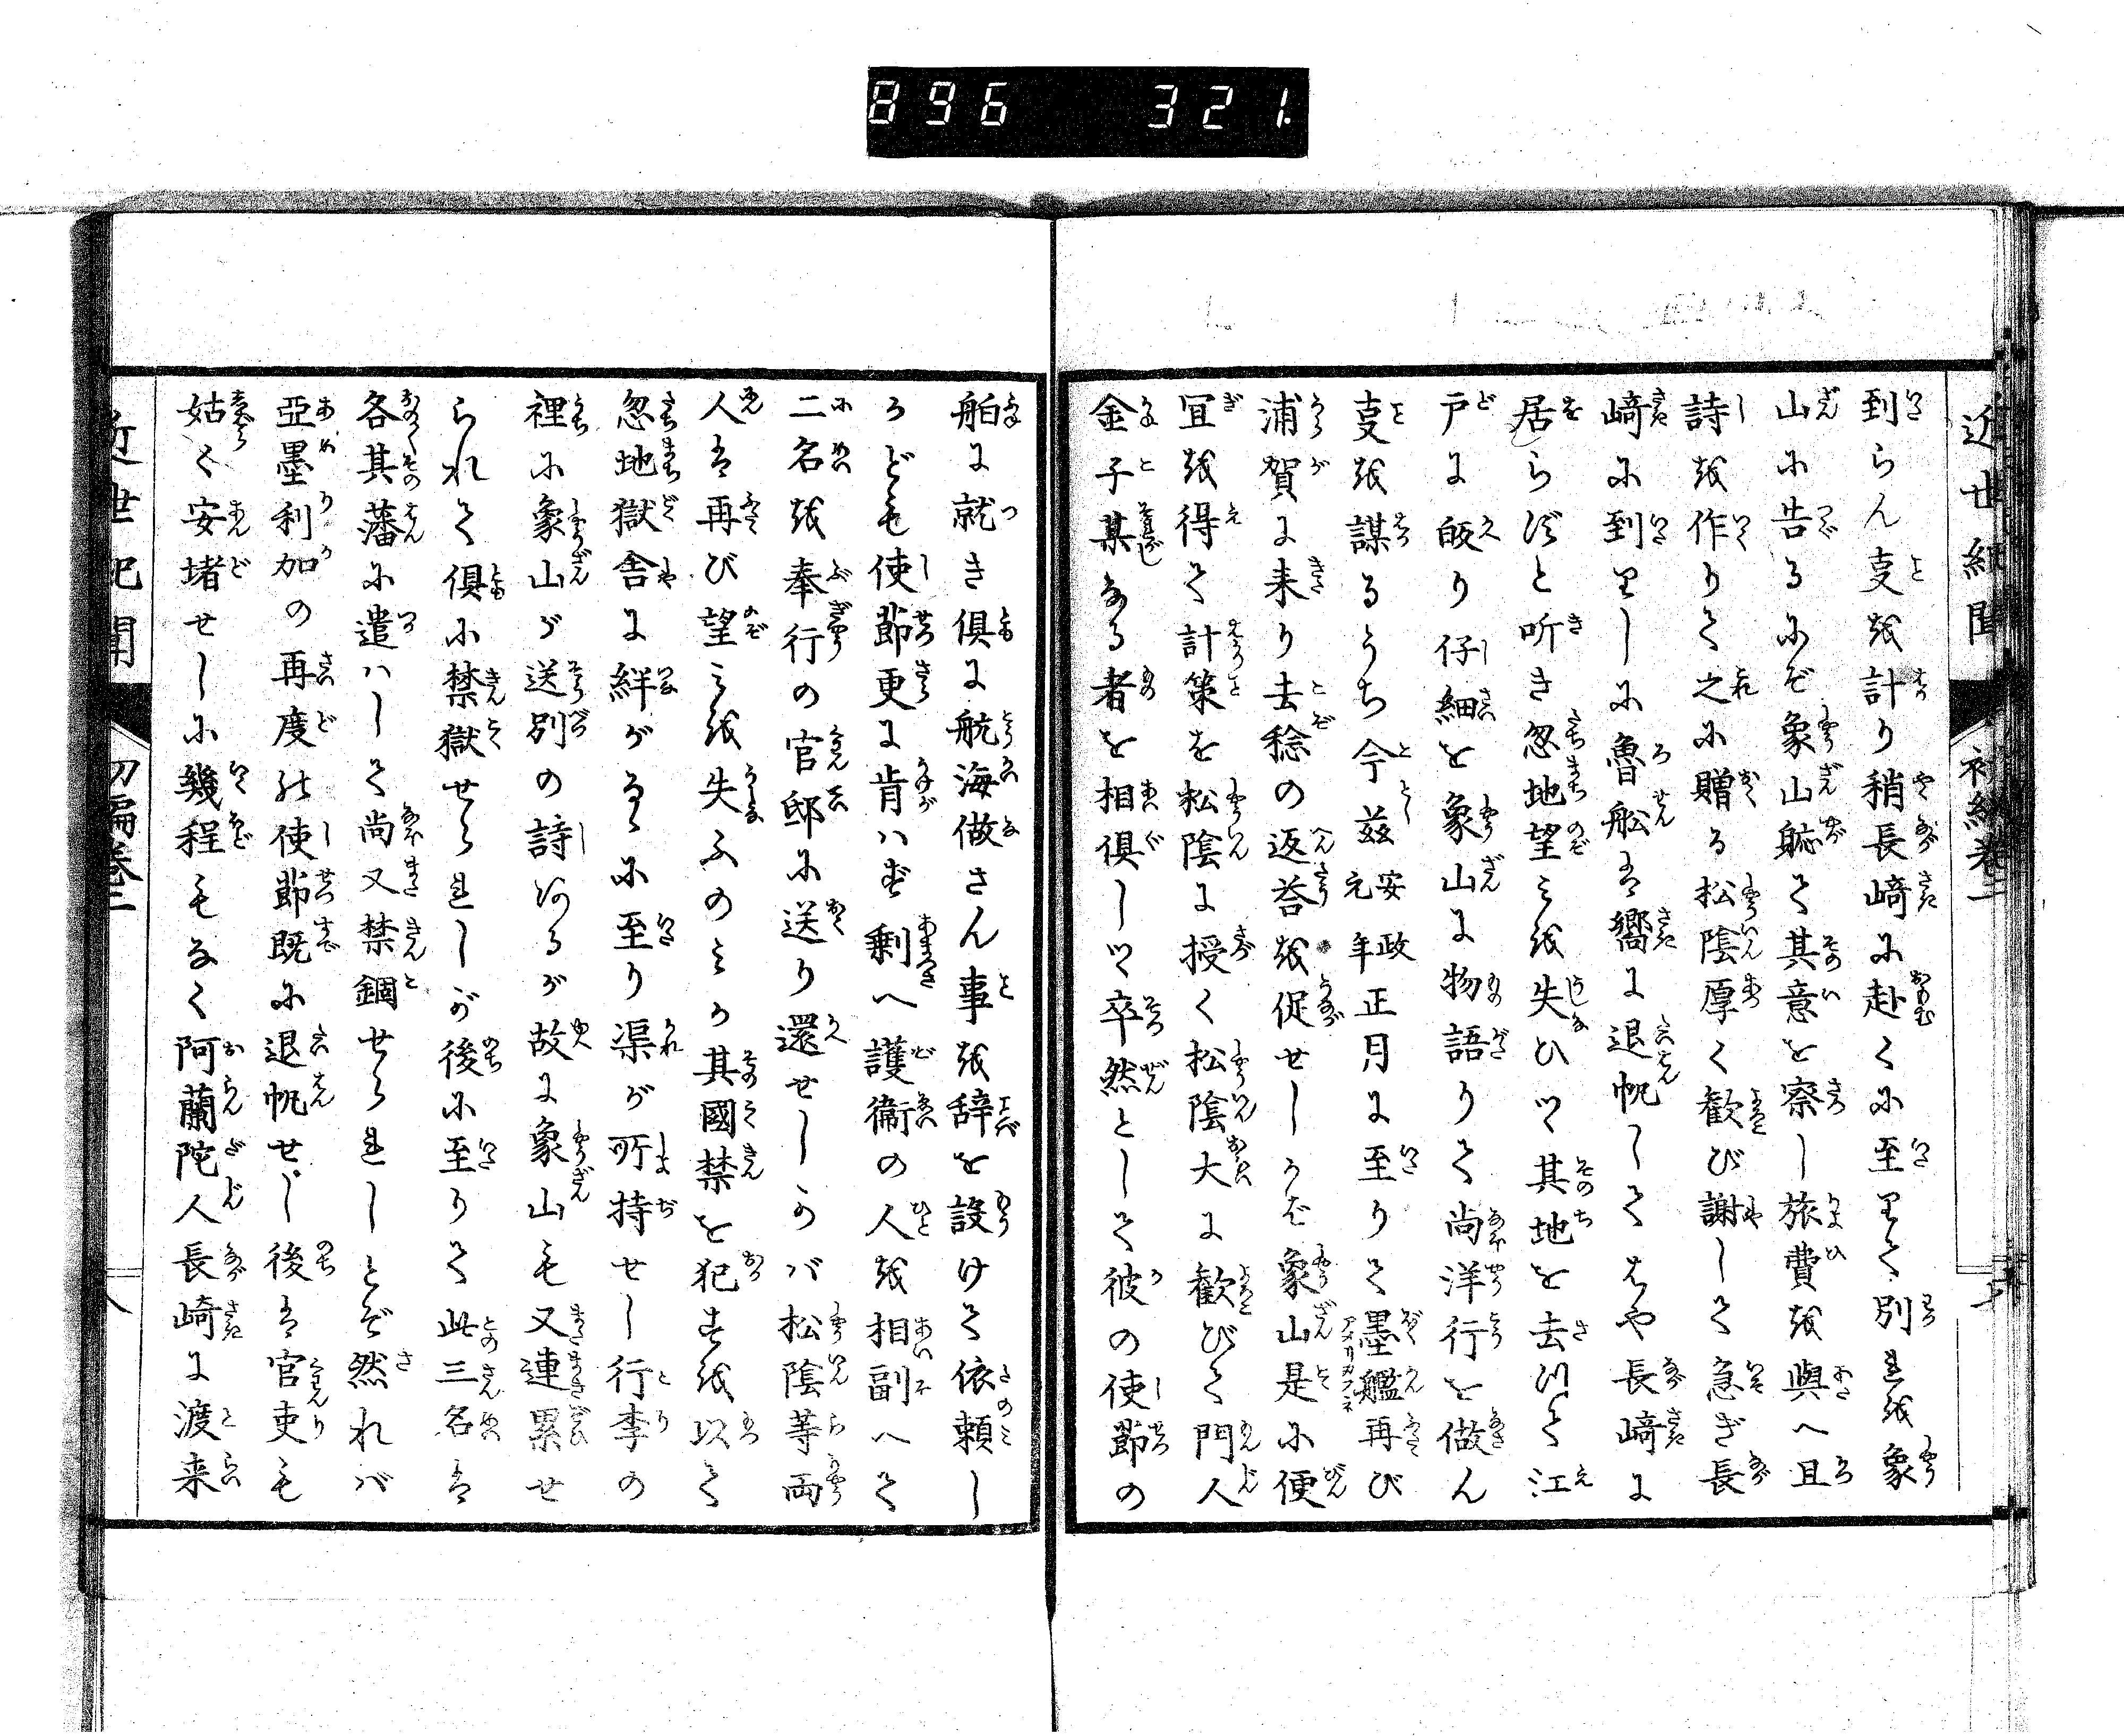 896 321
近世紀聞 初編巻二
到らん叓を計り稍長﨑に赴くに至りて別れを象
山に告るにぞ象山敏て其意を察し旅費を與へ且
詩を作りて之に贈る松陰厚く歓び謝して急ぎ長
﨑に到りしに魯舩は嚮に退帆してはや長﨑に
居らずと听き忽地望みを失ひつ其地を去りて江
戸に皈り仔細を象山に物語りて尚洋行を做ん
叓を謀るうち今茲安政元年正月に至りて墨艦再び
浦賀に来り去稔の返荅を促せしかば象山是に便
冝を得て計策を松陰に授く松陰大に歓びて門人
金子某なる者を相倶しつ卒然として彼の使節の
舶に就き倶に航海做さん事を辞を設けて依頼し
かども使節更に肯はず剰へ護衞の人を相副へて
二名を奉行の官邸に送り還せしかバ松陰等両
人は再び望みを失ふのみか其國禁を犯すを以て
忽地獄舎に絆がるゝに至り渠が所持せし行李の
裡に象山が送別の詩あるが故に象山も又連累せ
られて倶に禁獄せられしが後に至りて此三名は
各其藩に遣ハして尚又禁錮せられしとぞ然れバ
亞墨利加の再度の使節既に退帆せし後は官吏も
姑く安堵せしに幾程もなく阿蘭陀人長崎に渡来
近世紀聞 初編巻二 八